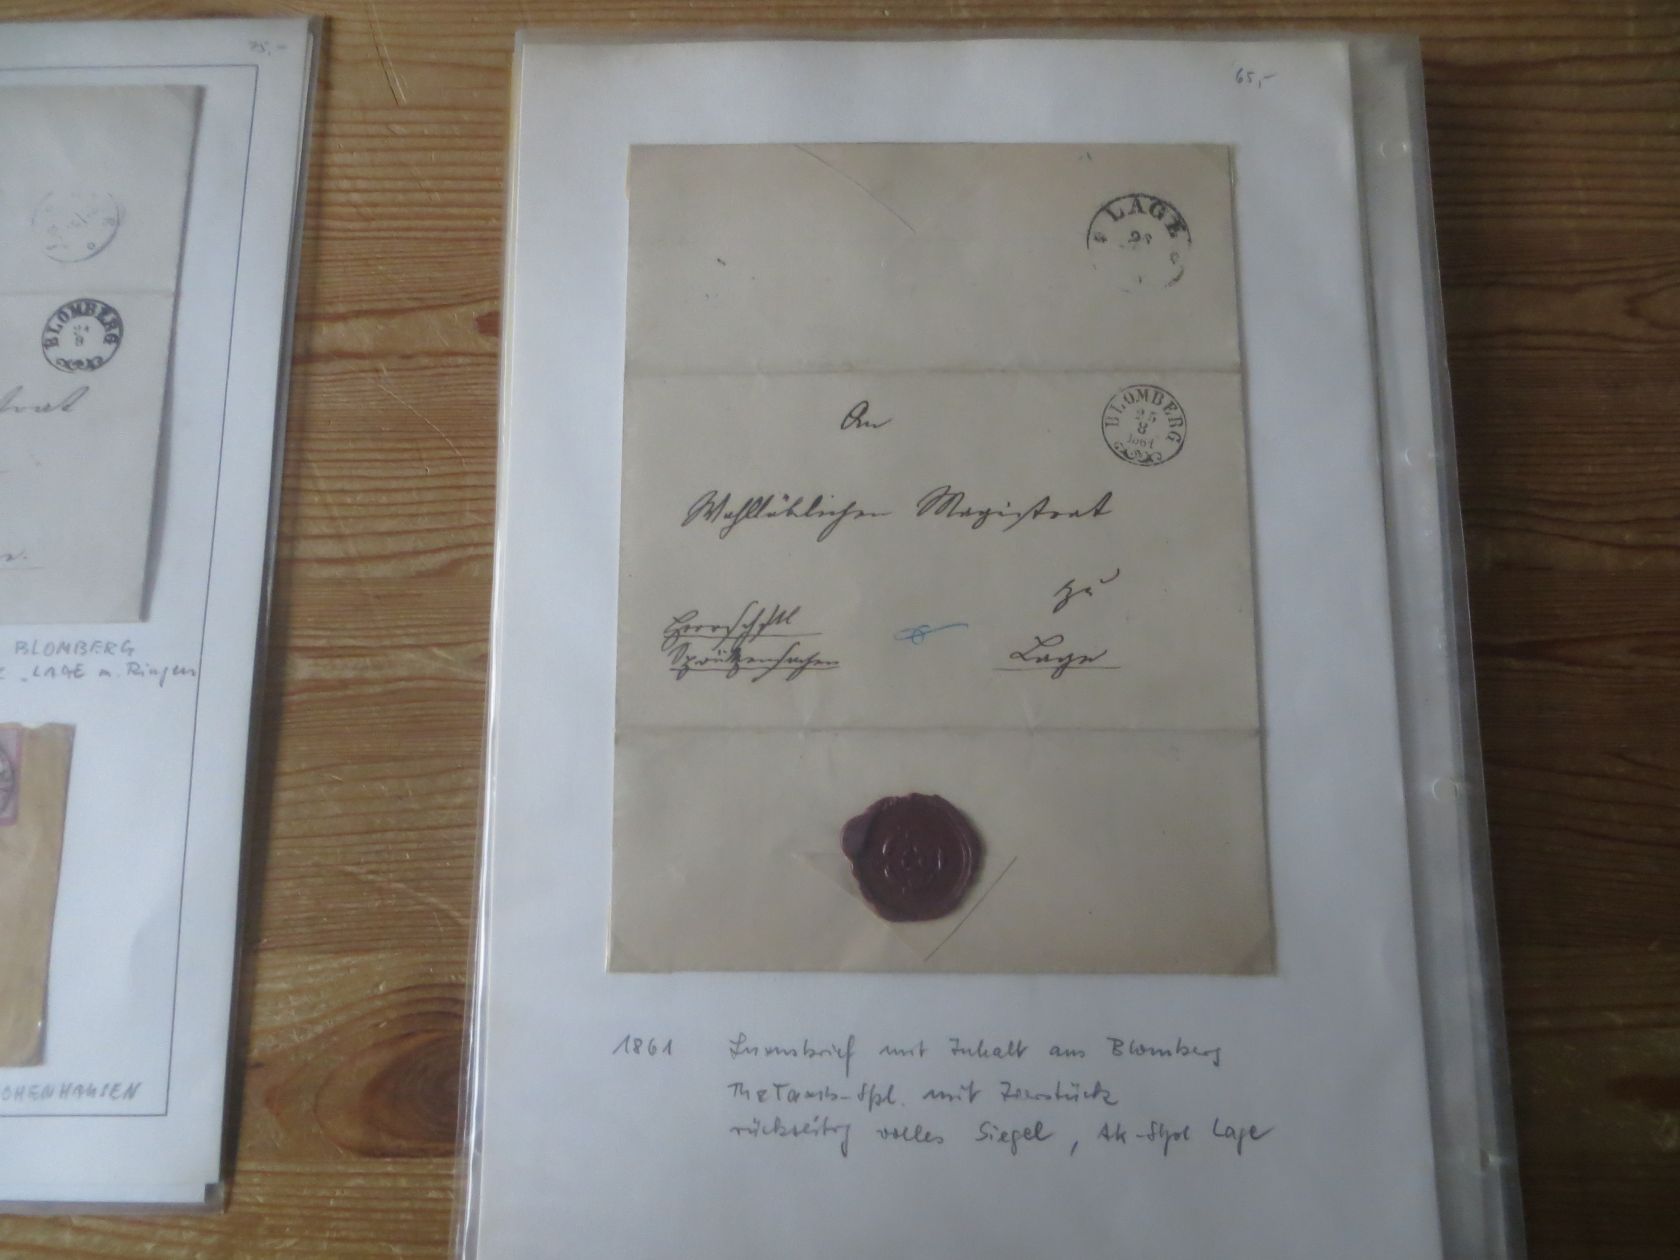 75,-
BLOMBERG
BLOMBERG
LAGE m. Ringen
OHENHAUSEN
65,-
LAGE
BLOMBERG
25
8
1861
An
Wohllöblichen Magistrat
zu
Lage
Herrschftl
Spritzensachen
1861 Luxusbrief mit Inhalt aus Blomberg
Th&Taxis-Stpl. mit Zierstück
rückseitig volles Siegel, Ak-Stpl Lage